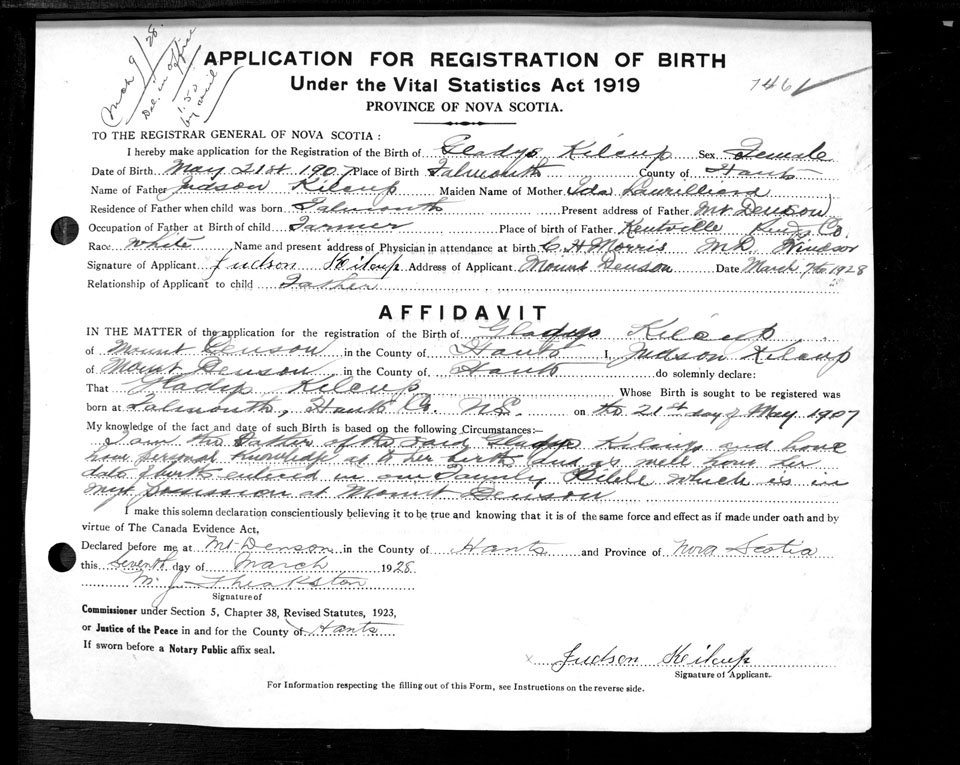 Mch 9/28
Del. in office
1.50
by mail
APPLICATION FOR REGISTRATION OF BIRTH
Under the Vital Statistics Act 1919
PROVINCE OF NOVA SCOTIA.
7461
TO THE REGISTRAR GENERAL OF NOVA SCOTIA :
I hereby make application for the Registration of the Birth of Gladys Kilcup Sex Female
Date of Birth May 21st 1907 Place of Birth Falmouth County of Hants
Name of Father Judson Kilcup Maiden Name of Mother Ida Laurilliard
Residence of Father when child was born Falmouth Present address of Father Mt Denson
Occupation of Father at Birth of child Farmer Place of birth of Father Kentville Kings Co.
Race White Name and present address of Physician in attendance at birth C. H Morris M.D. Windsor
Signature of Applicant Judson Kilcup Address of Applicant Mount Denson Date March 7th 1928
Relationship of Applicant to child Father
AFFIDAVIT
IN THE MATTER of the application for the registration of the Birth of Gladys Kilcup
of Mount Denson in the County of Hants I, Judson Kilcup
of Mount Denson in the County of Hants do solemnly declare:
That Gladys Kilcup Whose Birth is sought to be registered was
born at Falmouth, Hants Co. N.S. on the 21st day of May 1907
My knowledge of the fact and date of such Birth is based on the following Circumstances:—
I am the Father of the said Gladys Kilcup and have
personal knowledge as to her birth and as well have her
date of birth entered in our Family Bible which is in
my possession at Mount Denson
I make this solemn declaration conscientiously believing it to be true and knowing that it is of the same force and effect as if made under oath and by
virtue of The Canada Evidence Act,
Declared before me at Mt Denson in the County of Hants and Province of Nova Scotia
this Seventh day of March 1928.
M. J. Theakston
Signature of
Commissioner under Section 5, Chapter 38, Revised Statutes, 1923,
or Justice of the Peace in and for the County of Hants
If sworn before a Notary Public affix seal.
x Judson Kilcup
Signature of Applicant.
For Information respecting the filling out of this Form, see Instructions on the reverse side.